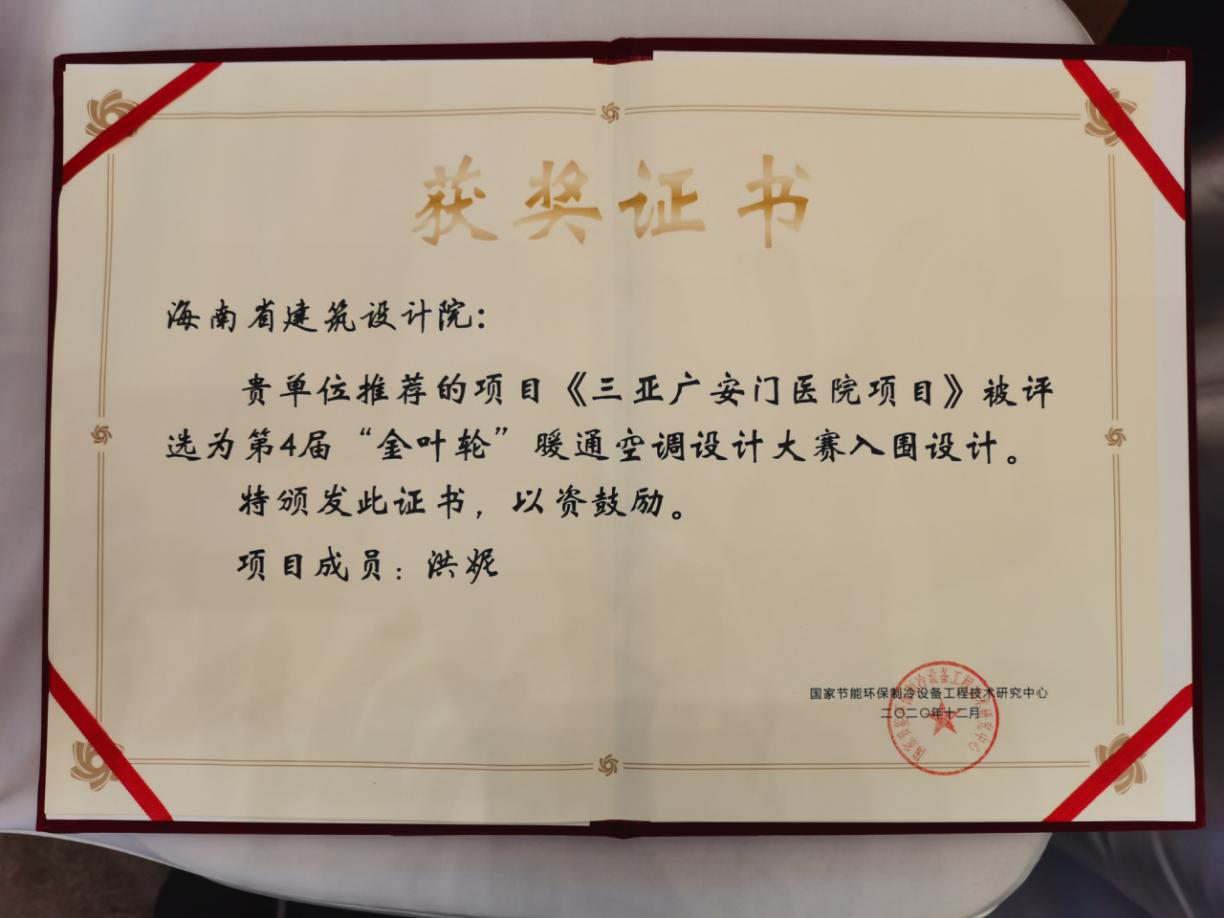 获奖证书
海南省建筑设计院：
贵单位推荐的项目《三亚广安门医院项目》被评
选为第4届“金叶轮”暖通空调设计大赛入围设计。
特颁发此证书，以资鼓励。
项目成员：洪妮
国家节能环保制冷设备工程技术研究中心
二〇二〇年十二月
国家节能环保制冷设备工程技术研究中心